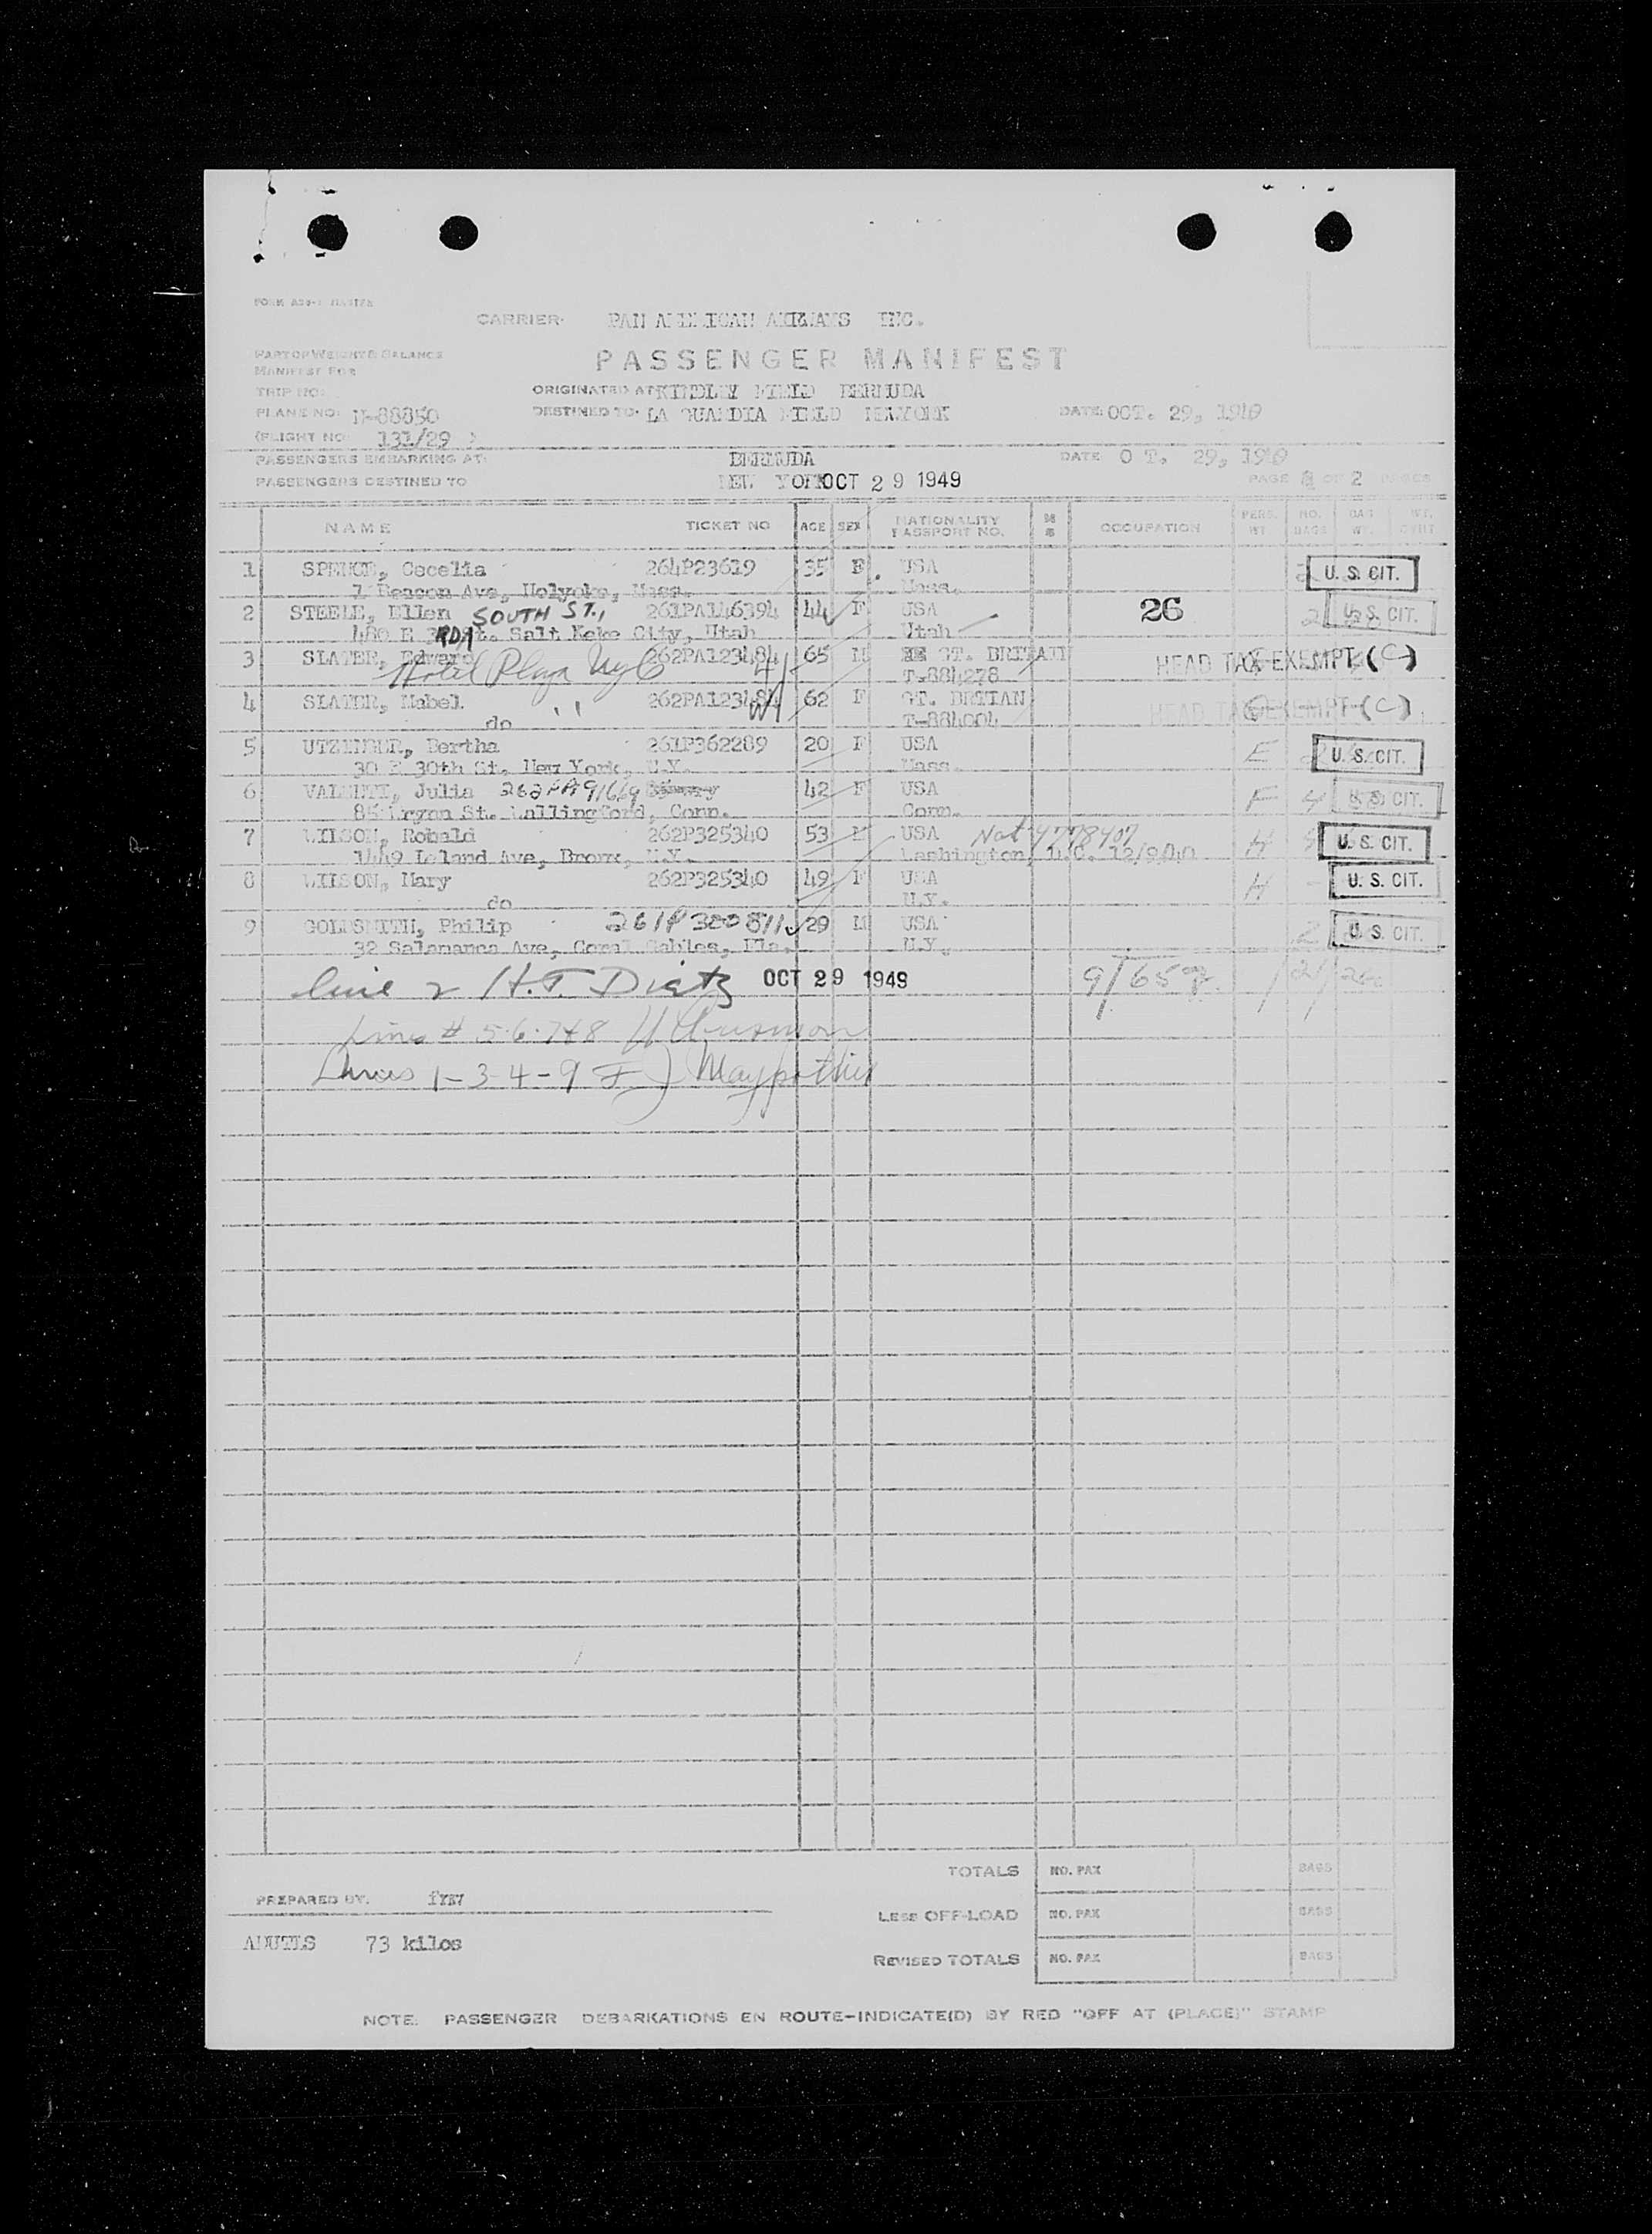 CARRIER: PAN AMERICAN AIRWAYS INC.
PART OF WEIGHT & BALANCE
MANIFEST FOR
PASSENGER MANIFEST
TRIP NO:
ORIGINATED AT KINDLEY FIELD BERMUDA
PLANE NO: N-88850
DESTINED TO: LA GUARDIA FIELD NEWYORK
DATE: OCT. 29, 1949
(FLIGHT NO 131/29 )
PASSENGERS EMBARKING AT: BERMUDA DATE O T. 29, 1949
PASSENGERS DESTINED TO NEW YORK OCT 29 1949 PAGE OF 2 PAGES
NAME TICKET NO AGE SEX NATIONALITY PASSPORT NO. OCCUPATION PERS. WT NO. BAGS BAG WT.
1 SPENCE, Cecelia 264P23619 35 F USA U. S. CIT.
7 Beacon Ave, Holyoke, Mass. Mass.
2 STEELE, Ellen SOUTH ST., 261PA146394 44 F USA 26 2 U. S. CIT.
480 E 3RD St. Salt Keke City, Utah Utah
3 SLATER, Edward 262PA123484 65 M GT. BRITAIN HEAD TAX EXEMPT (C)
Hotel Plaza NyC T-884278
4 SLATER, Mabel 262PA123484 62 F GT. BRITIAN HEAD TAX EXEMPT (C)
do " T-884004
5 UTZINGER, Bertha 261P362289 20 F USA U. S. CIT.
30 E 30th St, New York, N.Y. Mass.
6 VALENTI, Julia 262PA91669 42 F USA F 4 U. S. CIT.
85 St. Wallingford, Conn. Conn.
7 WILSON, Robald 262P325340 53 M USA Nat 4778407 H U. S. CIT.
1449 Leland Ave, Bronx, N.Y. Washington, D.C. 12/9/40
8 WILSON, Mary 262P325340 49 F USA H - U. S. CIT.
do N.Y.
9 GOLDSMITH, Philip 261P300811 29 M USA 2 U. S. CIT.
32 Salamanca Ave, Coral Gables, Fla. N.Y.
line 2 H.T. Dietz OCT 29 1949 9/658
Lines # 5-6-7+8
Lines 1-3-4-9
TOTALS NO. PAX BAGS
PREPARED BY:
LESS OFF-LOAD NO. PAX BAGS
ADUTLS 73 kilos
REVISED TOTALS NO. PAX BAGS
NOTE: PASSENGER DEBARKATIONS EN ROUTE-INDICATE(D) BY RED "OFF AT (PLACE)" STAMP